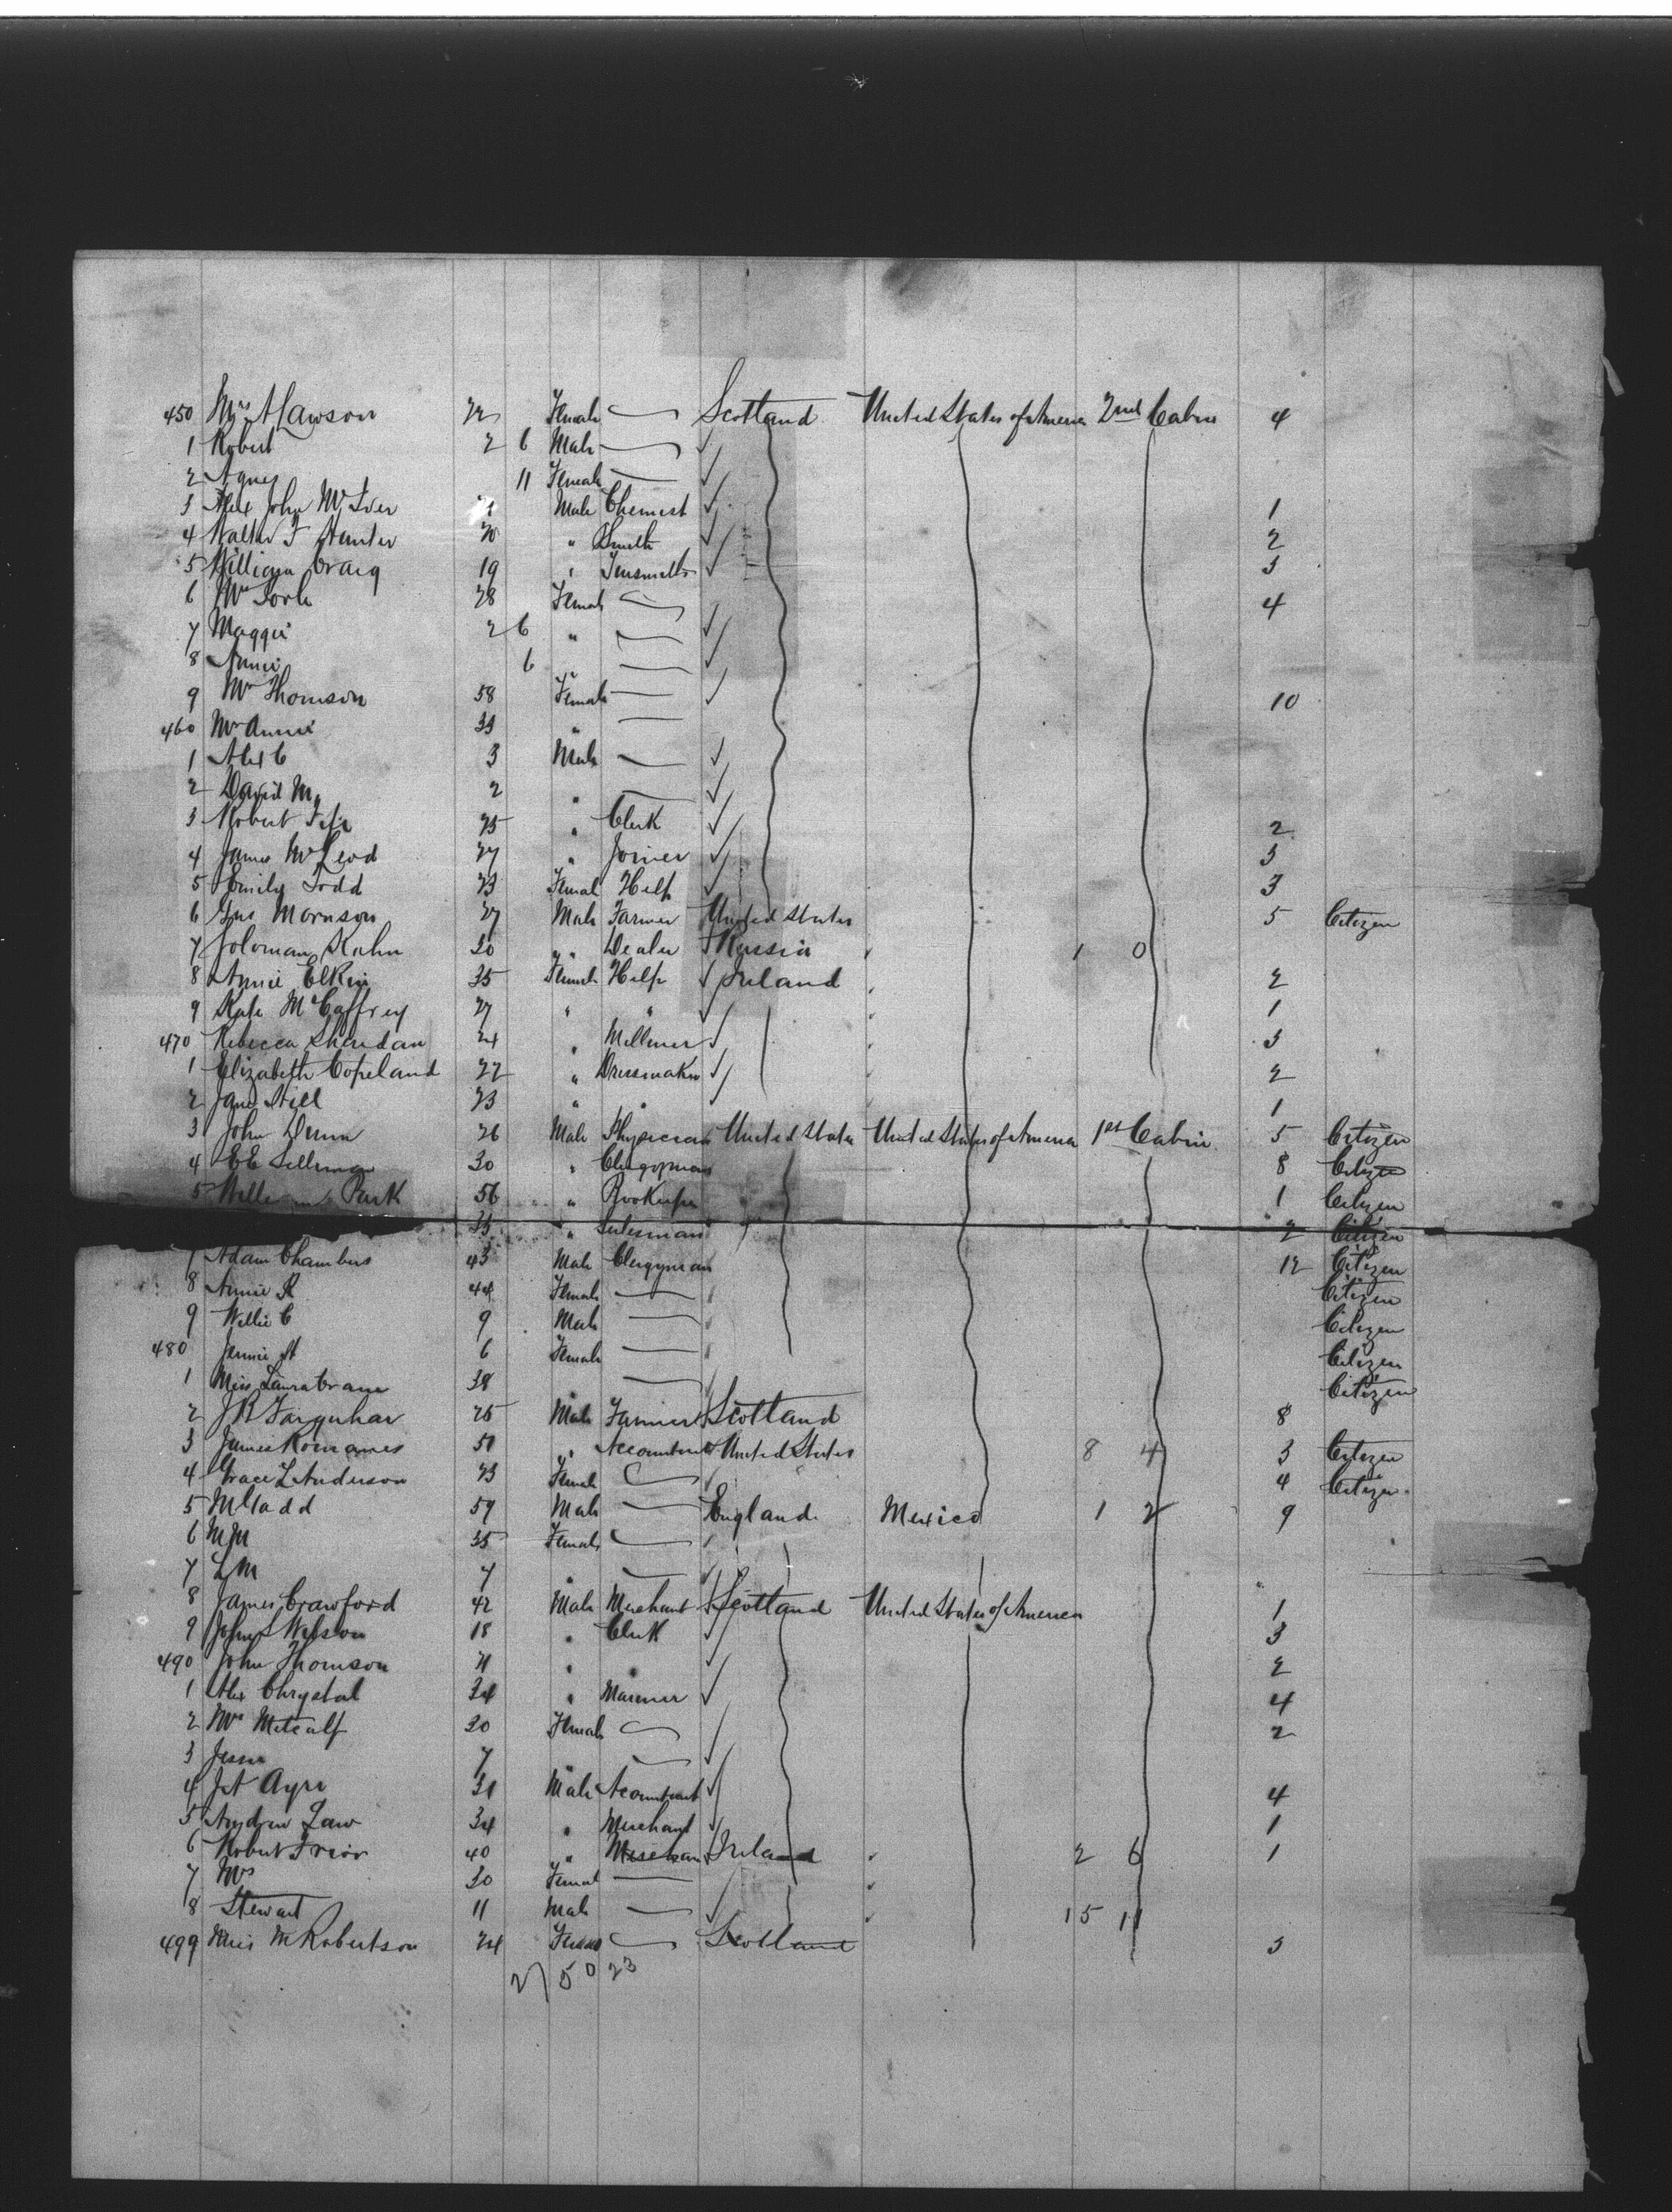 450 Mrs A Lawson 22 Female Scotland United States of America 2nd Cabin 4
1 Robert 2 6 Male
2 Agnes 11 Female
3 Alex John McIver Male Chemist 1
4 Walter F Hunter 20 " Smith 2
5 William Craig 19 " Tinsmith 3
6 Mrs 28 Female 4
7 Maggie 2 6 "
8 Annie 6 "
9 Mrs Thomson 58 Female 10
460 Mrs Annie 33 "
1 Alex C 3 Male
2 David M 2 "
3 Robert 25 " Clerk 2
4 James McLeod 27 " Joiner 3
5 Emily Todd 23 Female Help 3
6 Jno Morrison 27 Male Farmer United States 5 Citizen
7 Soloman Kahn 30 " Dealer Russia " 1 0
8 Annie Elkin 35 Female Help Ireland " 2
9 Kate McCaffrey 27 " " " 1
470 Rebecca Sheridan 24 " Milliner " 3
1 Elizabeth Copeland 22 " Dressmaker " 2
2 Jane Still 23 " " " 1
3 John Dunn 26 Male Physician United States United States of America 1st Cabin 5 Citizen
4 E E 30 " Clergyman 8 Citizen
5 William Park 56 " Bookeeper 1 Citizen
35 " Salesman 2 Citizen
7 Adam Chambers 43 Male Clergyman 12 Citizen
8 Annie R 44 Female Citizen
9 Willie C 9 Male Citizen
480 Jennie A 6 Female Citizen
1 Miss Laura Crane 38 Citizen
2 J R Farquhar 25 Male Farmer Scotland 8
3 James Romanes 50 " Accountant United States 8 4 3 Citizen
4 Grace L Anderson 23 Female 4 Citizen
5 M Gadd 59 Male England Mexico 1 2 9
6 M M 35 Female
7 L M 7 "
8 James Crawford 42 Male Merchant Scotland United States of America 1
9 John S Watson 18 " Clerk 3
490 John Thomson 21 " " 2
1 Alex Chrystal 34 " Mariner 4
2 Mrs Metcalf 30 Female 2
3 Jessie 7 "
4 J A Ayre 31 Male Acountant 4
5 Andrew Law 34 " Merchant 1
6 Robert Prior 40 " Merchan Ireland " 2 6 1
7 Mrs 30 Female "
8 Stewart 11 Male " 15 11
499 Miss M Robertson 24 Female Scotland 3
27 50 23